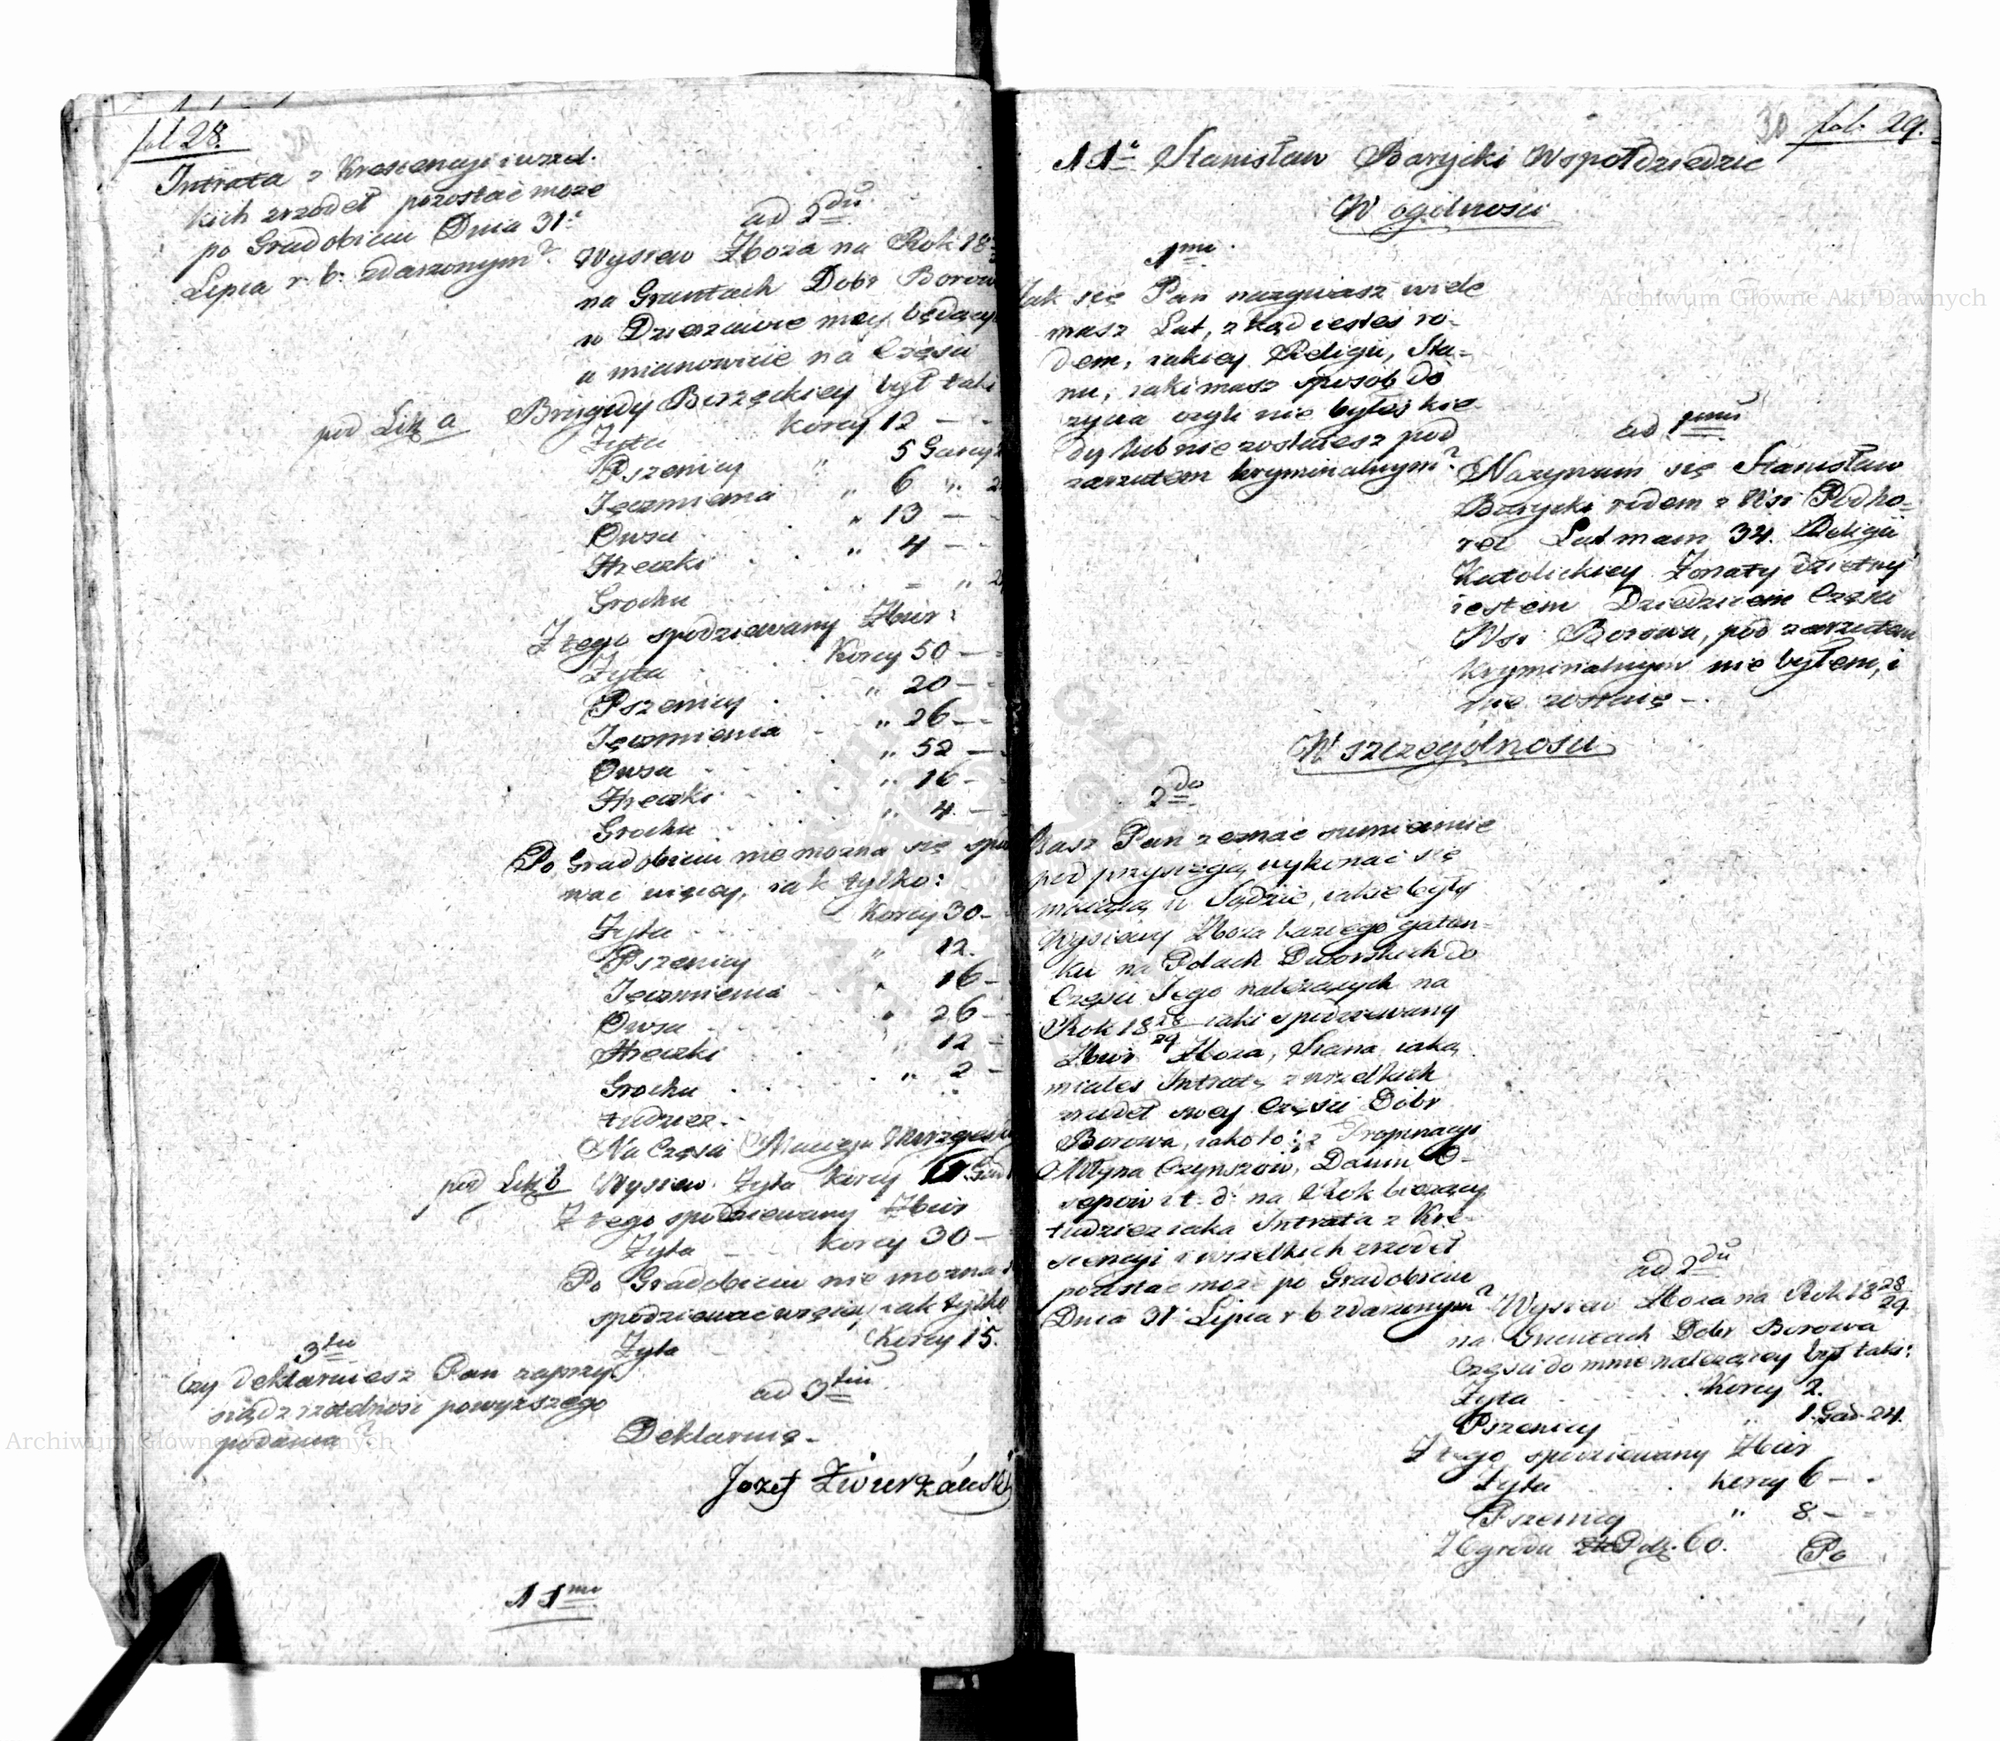 fol 28.
Intrata z Krescencyi i wszel.
kich zrzodeł pozostać może
po Gradobiciu Dnia 31º
Lipca r. b. zdarzonym?
ad 2du
Wysiew Zboża na Rok 18
na Gruntach Dobr Borow
w Dzierzawie mey będący
a mianowicie na Części
pod Lit a Brygidy Berzęckiey był taki
Zyta Korcy 12 —
Pszenicy " 5 Garcy
Jęczmienia " 6 " 2
Owsa " 13 —
Hreczki " 4 —
Grochu = " 2
Z tego spodziewany Zbior:
Zyta Korcy 50 —
Pszenicy " 20 —
Jęczmienia " 26 —
Owsa " 52 —
Hreczki " 16 —
Grochu " 4 —
Po Gradobiciu nie można się spo
wac więcey, iak tylko:
Zyta Korcy 30 —
Pszenicy " 12.
Jęczmienia " 16 —
Owsa " 26 —
Hreczki " 12 —
Grochu " 2 —
tudziez —
Na Części Macieja
pod Lit b Wysiew Zyta Korcy
Z tego spodziewany Zbior
Zyta Korcy 30 —
Po Gradobiciu nie można
spodziewac więcey iak tylko
Zyta Korcy 15.
3tio
Czy deklaruiesz Pan zaprzy
siądz rzetelność powyższego
podania?
ad 3tiu
Deklaruię —
Jozef
11mo
30 fol: 29.
11º Stanisław Barycki Wspołdziedzic
W ogólności
1mo
Jak się Pan nazywasz wiele
masz Lat, zkąd iesteś ro-
dem, iakiey Religii, Sta-
nu, iaki masz sposób do
życia czyli nie byłeś kie-
dy lub nie zostaiesz pod
zarzutem kryminalnym?
ad 1mum
Nazywam się Stanisław
Barycki rodem z Wsi Podho-
rec Lat mam 34. Religii
Katolickiey Zonaty dzietny
iestem Dziedzicem Części
Wsi Borowa, pod zarzutem
kryminalnym nie byłem, i
nie zostaię —
W szczególności
2do
Masz Pan zeznać sumiennie
pod przysięgą wykonać się
maiącą w Sądzie, iakie były
Wysiewy Zboża każdego gatun-
ku na Polach Dworskich do
Części Jego należących na
Rok 18 28/29 iaki spodziewany
Zbior Zboża, Siana iaką
miałeś Intratę z wszelkich
zrudeł swey Części Dobr
Borowa, iako to: z Propinacyi
Młyna Czynszów, Danin O-
sepów i t. d: na Rok bieżący
tudziez iaka Intrata z Kre-
scencyi i wszelkich zrzodeł
pozostac może po Gradobiciu
Dnia 31º Lipca r b zdarzonym?
ad 2du
Wysiew Zboża na Rok 18 28/29
na Gruntach Dobr Borowa
Części do mnie należącey był taki:
Zyta Korcy 2.
Pszenicy " 1. Gar. 24.
Z tego spodziewany Zbiór
Zyta Korcy 6 —
Pszenicy " 8. —
Z Ogrodu 60.
Po
Archiwum Główne Akt Dawnych
Archiwum Główne Akt Dawnych